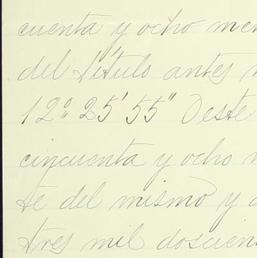 cuenta y ocho
del título antes
12º 25' 55" Oeste
cincuenta y ocho
te del mismo y
tres mil doscien